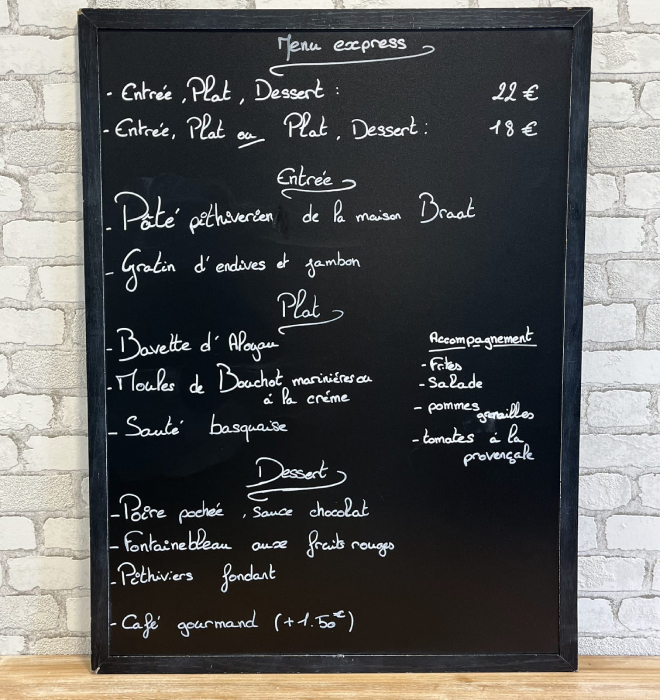 Menu express
- Entrée, Plat, Dessert : 22 €
- Entrée, Plat ou Plat, Dessert : 18 €
Entrée
- Pâté pithiverien de la maison Braat
- Gratin d'endives et jambon
Plat
- Bavette d'Aloyau
- Moules de Bouchot marinières ou
à la crème
- Sauté basquaise
Accompagnement
- Frites
- Salade
- pommes grenailles
- tomates à la
provençale
Dessert
- Poire pochée, sauce chocolat
- Fontainebleau aux fruits rouges
- Pithiviers fondant
- Café gourmand (+1.50€)